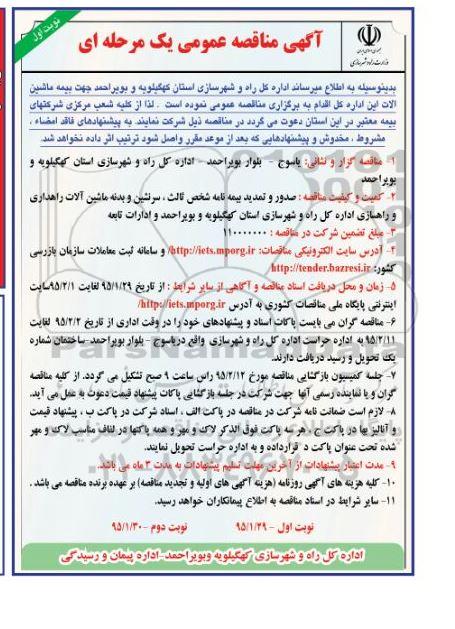 نوبت اول
آگهی مناقصه عمومی یک مرحله ای
وزارت راه و شهرسازی
بدینوسیله به اطلاع میرساند اداره کل راه و شهرسازی استان کهگیلویه و بویراحمد جهت بیمه ماشین
الات این اداره کل اقدام به برگزاری مناقصه عمومی نموده است . لذا از کلیه شعب مرکزی شرکتهای
بیمه معتبر در این استان دعوت می گردد در مناقصه ذیل شرکت نمایند. به پیشنهادهای فاقد امضاء ،
مشروط ، مخدوش و پیشنهادهایی که بعد از موعد مقرر واصل شود ترتیب اثر داده نخواهد شد.
۱- مناقصه گزار و نشانی: یاسوج - بلوار بویراحمد - اداره کل راه و شهرسازی استان کهگیلویه و
بویراحمد
۲- کمیت و کیفیت مناقصه : صدور و تمدید بیمه نامه شخص ثالث ، سرنشین و بدنه ماشین آلات راهداری
و راهسازی اداره کل راه و شهرسازی استان کهگیلویه و بویراحمد و ادارات تابعه
۳- مبلغ تضمین شرکت در مناقصه : ۱۱۰۰۰۰۰۰۰
۴- آدرس سایت الکترونیکی مناقصات: http://iets.mporg.ir/ و سامانه ثبت معاملات سازمان بازرسی
کشور: http://tender.bazresi.ir
۵- زمان و محل دریافت اسناد مناقصه و آگاهی از سایر شرایط : از تاریخ ۹۵/۱/۲۹ لغایت ۹۵/۲/۱سایت
اینترنتی پایگاه ملی مناقصات کشوری به آدرس http://iets.mporg.ir/
۶- مناقصه گران می بایست پاکات اسناد و پیشنهادهای خود را در وقت اداری از تاریخ ۹۵/۲/۲ لغایت
۹۵/۲/۱۱ به اداره حراست اداره کل راه و شهرسازی واقع در یاسوج - بلوار بویراحمد -ساختمان شماره
یک تحویل و رسید دریافت دارند.
۷- جلسه کمیسیون بازگشایی مناقصه مورخ ۹۵/۲/۱۲ راس ساعت ۹ صبح تشکیل می گردد. از کلیه مناقصه
گران و یا نماینده رسمی آنها جهت شرکت در جلسه بازگشایی پاکات پیشنهاد قیمت دعوت به عمل می آید.
۸- لازم است ضمانت نامه شرکت در مناقصه در پاکت الف ، اسناد شرکت در پاکت ب ، پیشنهاد قیمت
و آنالیز بها در پاکت ج ، هر سه پاکت فوق الذکر لاک و مهر و همه پاکتها در لفاف مناسب لاک و مهر
شده تحت عنوان پاکت د قرارداده و به اداره حراست تحویل نمایند.
۹- مدت اعتبار پیشنهادات از آخرین مهلت تسلیم پیشنهادات به مدت ۳ ماه می باشد.
۱۰- کلیه هزینه های آگهی روزنامه (هزینه آگهی های اولیه و تجدید مناقصه) بر عهده برنده مناقصه می باشد .
۱۱- سایر شرایط در اسناد مناقصه به اطلاع پیمانکاران خواهد رسید.
نوبت اول - ۹۵/۱/۲۹ نوبت دوم - ۹۵/۱/۳۰
اداره کل راه و شهرسازی کهگیلویه وبویراحمد-اداره پیمان و رسیدگی